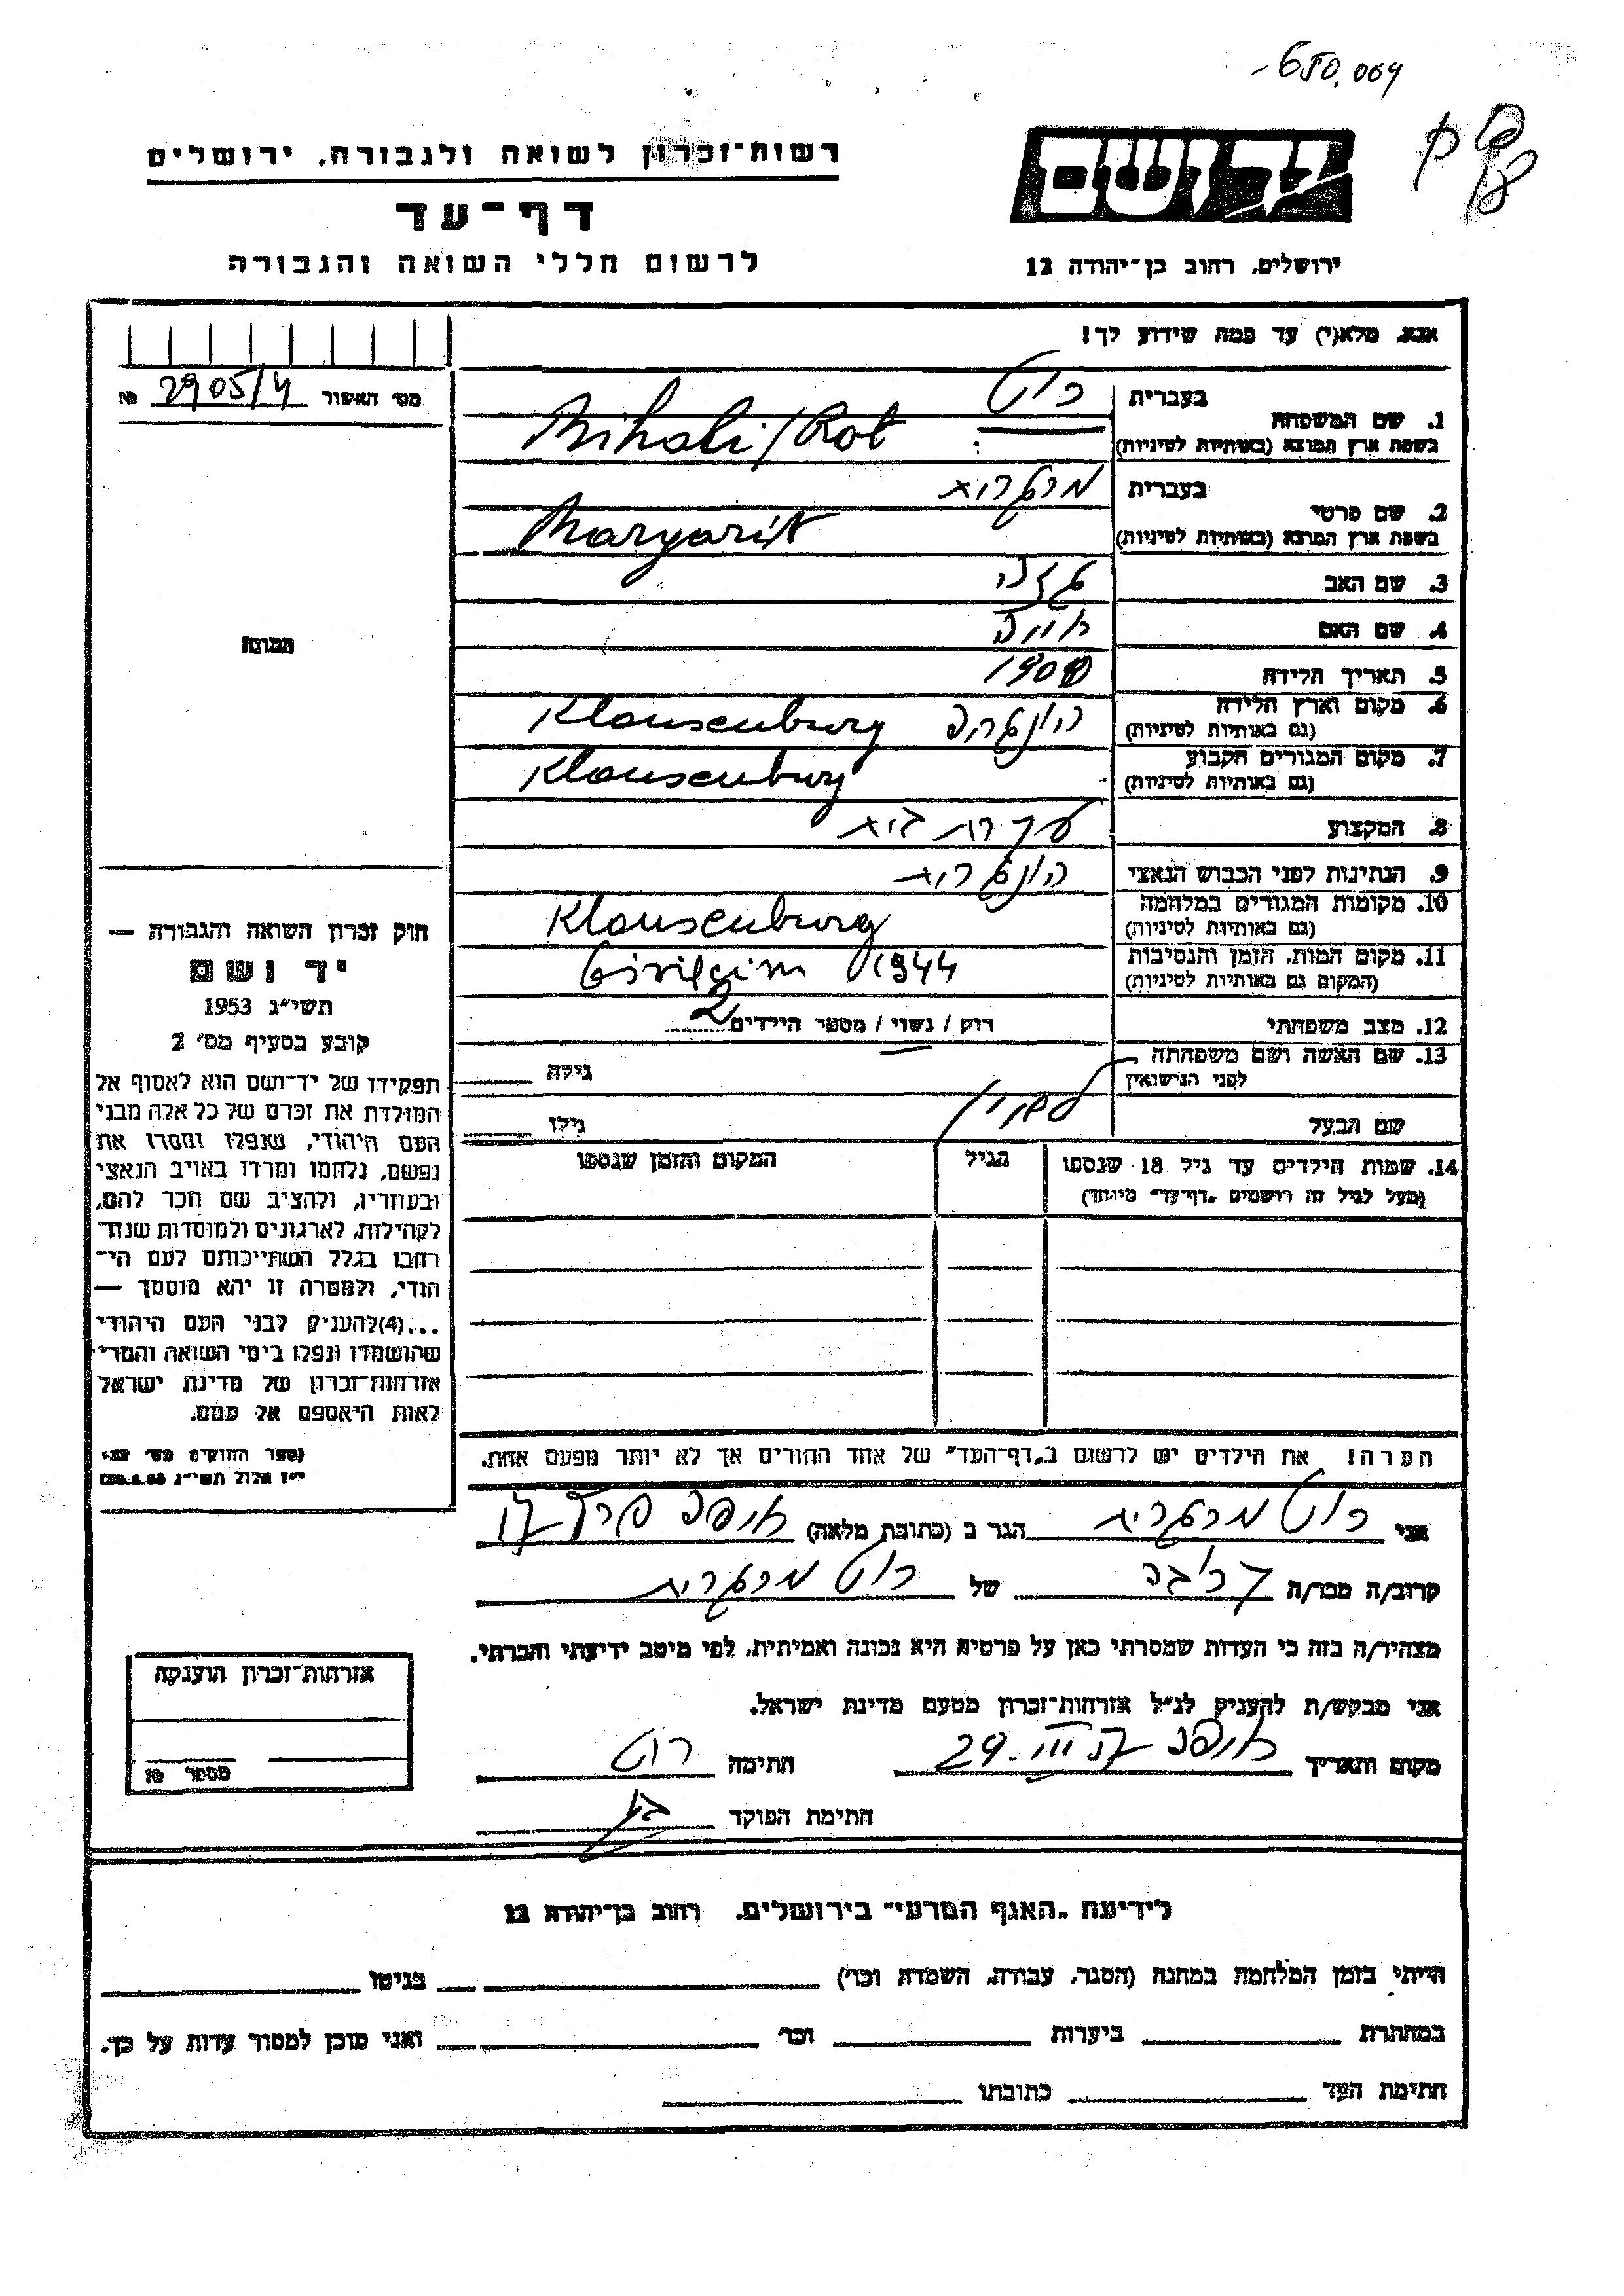 -650.064
רשות־זכרון לשואה ולגבורה, ירושלים
דף־עד
לרשום חללי השואה והגבורה
יד ושם
ירושלים, רחוב בן־יהודה 12
אנא, מלא(י) עד כמה שידוע לך!
מס' האשור 2905/4 №
1. שם המשפחה
בעברית רוט
בשפת ארץ המוצא (באותיות לטיניות) Mihali/Rot
2. שם פרטי
בעברית מרגרית
בשפת ארץ המוצא (באותיות לטיניות) Margarit
3. שם האב
4. שם האם
5. תאריך הלידה
6. מקום וארץ הלידה
(גם באותיות לטיניות) הונגריה Klausenburg
7. מקום המגורים הקבוע
(גם באותיות לטיניות) Klausenburg
8. המקצוע עקרת בית
9. הנתינות לפני הכבוש הנאצי הונגרית
10. מקומות המגורים במלחמה
(גם באותיות לטיניות) Klausenburg
11. מקום המות, הזמן והנסיבות
(המקום גם באותיות לטיניות) 1944
12. מצב משפחתי רוק / נשוי / מספר הילדים 2
13. שם האשה ושם משפחתה
לפני הנישואין גילה
שם הבעל גילו
14. שמות הילדים עד גיל 18 שנספו
(מעל לגיל זה רושמים "דף־עד" מיוחד)
הגיל
המקום והזמן שנספו
הערה: את הילדים יש לרשום ב"דף־העד" של אחד ההורים אך לא יותר מפעם אחת.
תמונה
חוק זכרון השואה והגבורה —
יד ושם
תשי"ג 1953
קובע בסעיף מס' 2
תפקידו של יד־ושם הוא לאסוף אל
המולדת את זכרם של כל אלה מבני
העם היהודי, שנפלו ומסרו את
נפשם, נלחמו ומרדו באויב הנאצי
ובעוזריו, ולהציב שם וזכר להם,
לקהילות, לארגונים ולמוסדות שנח־
רבו בגלל השתייכותם לעם הי־
הודי, ולמטרה זו יהא מוסמך —
...(4)להעניק לבני העם היהודי
שהושמדו ונפלו בימי השואה והמרי
אזרחות־זכרון של מדינת ישראל
לאות היאספם אל עמם.
(ספר החוקים מס' 132
י"ז אלול תשי"ג 28.8.53)
אני רוט מרגרית הגר ב (כתובת מלאה)
קרוב/ה מכר/ה קרובה של רוט מרגרית
מצהיר/ה בזה כי העדות שמסרתי כאן על פרטיה היא נכונה ואמיתית, לפי מיטב ידיעתי והכרתי.
אני מבקש/ת להעניק לנ"ל אזרחות־זכרון מטעם מדינת ישראל.
מקום ותאריך 29.III חתימה רוט
חתימת הפוקד
אזרחות־זכרון הוענקה
מספר №
לידיעת "האגף המדעי" בירושלים, רחוב בן־יהודה 12
הייתי בזמן המלחמה במחנה (הסגר, עבודה, השמדה וכר') בגיטו
במחתרת ביערות וכר' ואני מוכן למסור עדות על כך.
חתימת העד כתובתו